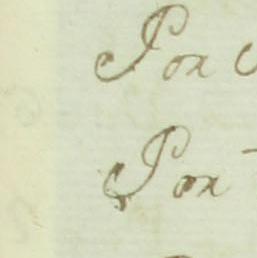 Por
Por